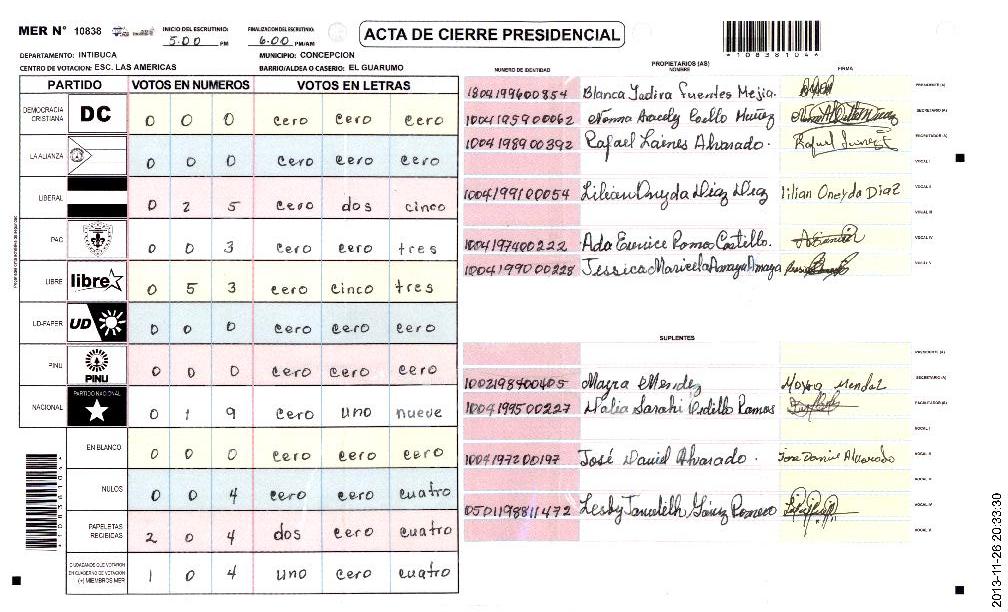 MER N° 10838
INICIO DEL ESCRUTINIO: 5:00 PM
FINALIZACION DEL ESCRUTINIO: 6:00 PM/AM
ACTA DE CIERRE PRESIDENCIAL
*10838104*
DEPARTAMENTO: INTIBUCA
MUNICIPIO: CONCEPCION
CENTRO DE VOTACION: ESC. LAS AMERICAS
BARRIO/ALDEA O CASERIO: EL GUARUMO
PARTIDO VOTOS EN NUMEROS VOTOS EN LETRAS
DEMOCRACIA CRISTIANA DC 0 0 0 cero cero cero
LA ALIANZA 0 0 0 cero cero cero
LIBERAL 0 2 5 cero dos cinco
PAC 0 0 3 cero cero tres
LIBRE libre 0 5 3 cero cinco tres
UD-FAPER UD 0 0 0 cero cero cero
PINU PINU 0 0 0 cero cero cero
NACIONAL PARTIDO NACIONAL 0 1 9 cero uno nueve
EN BLANCO 0 0 0 cero cero cero
NULOS 0 0 4 cero cero cuatro
PAPELETAS RECIBIDAS 2 0 4 dos cero cuatro
CIUDADANOS QUE VOTARON EN CUADERNO DE VOTACION (+) MIEMBROS MER 1 0 4 uno cero cuatro
PROPIETARIOS (AS)
NUMERO DE IDENTIDAD NOMBRE FIRMA
1804199600854 Blanca Yadira Fuentes Mejia. PRESIDENTE (A)
1004195900062 Norma Aracely Coello Muñoz SECRETARIO (A)
1004198900392 Rafael Laines Alvarado. ESCRUTADOR (A)
VOCAL I
1004199100054 Lilian Oneyda Diaz Diaz Lilian Oneyda Diaz VOCAL II
VOCAL III
1004197400222 Ada Eunice Ramos Castillo. VOCAL IV
1004199000228 Jessica Maricela Amaya Amaya VOCAL V
SUPLENTES
PRESIDENTE (A)
1002198400405 Mayra Mendez SECRETARIO (A)
1004199500227 Dalia Sarahi Ramos
VOCAL I
1004197200197 José Daniel Alvarado. Jose Daniel Alvarado VOCAL II
VOCAL III
0501198811472 Lesby Romero VOCAL IV
VOCAL V
2013-11-26 20:33:30